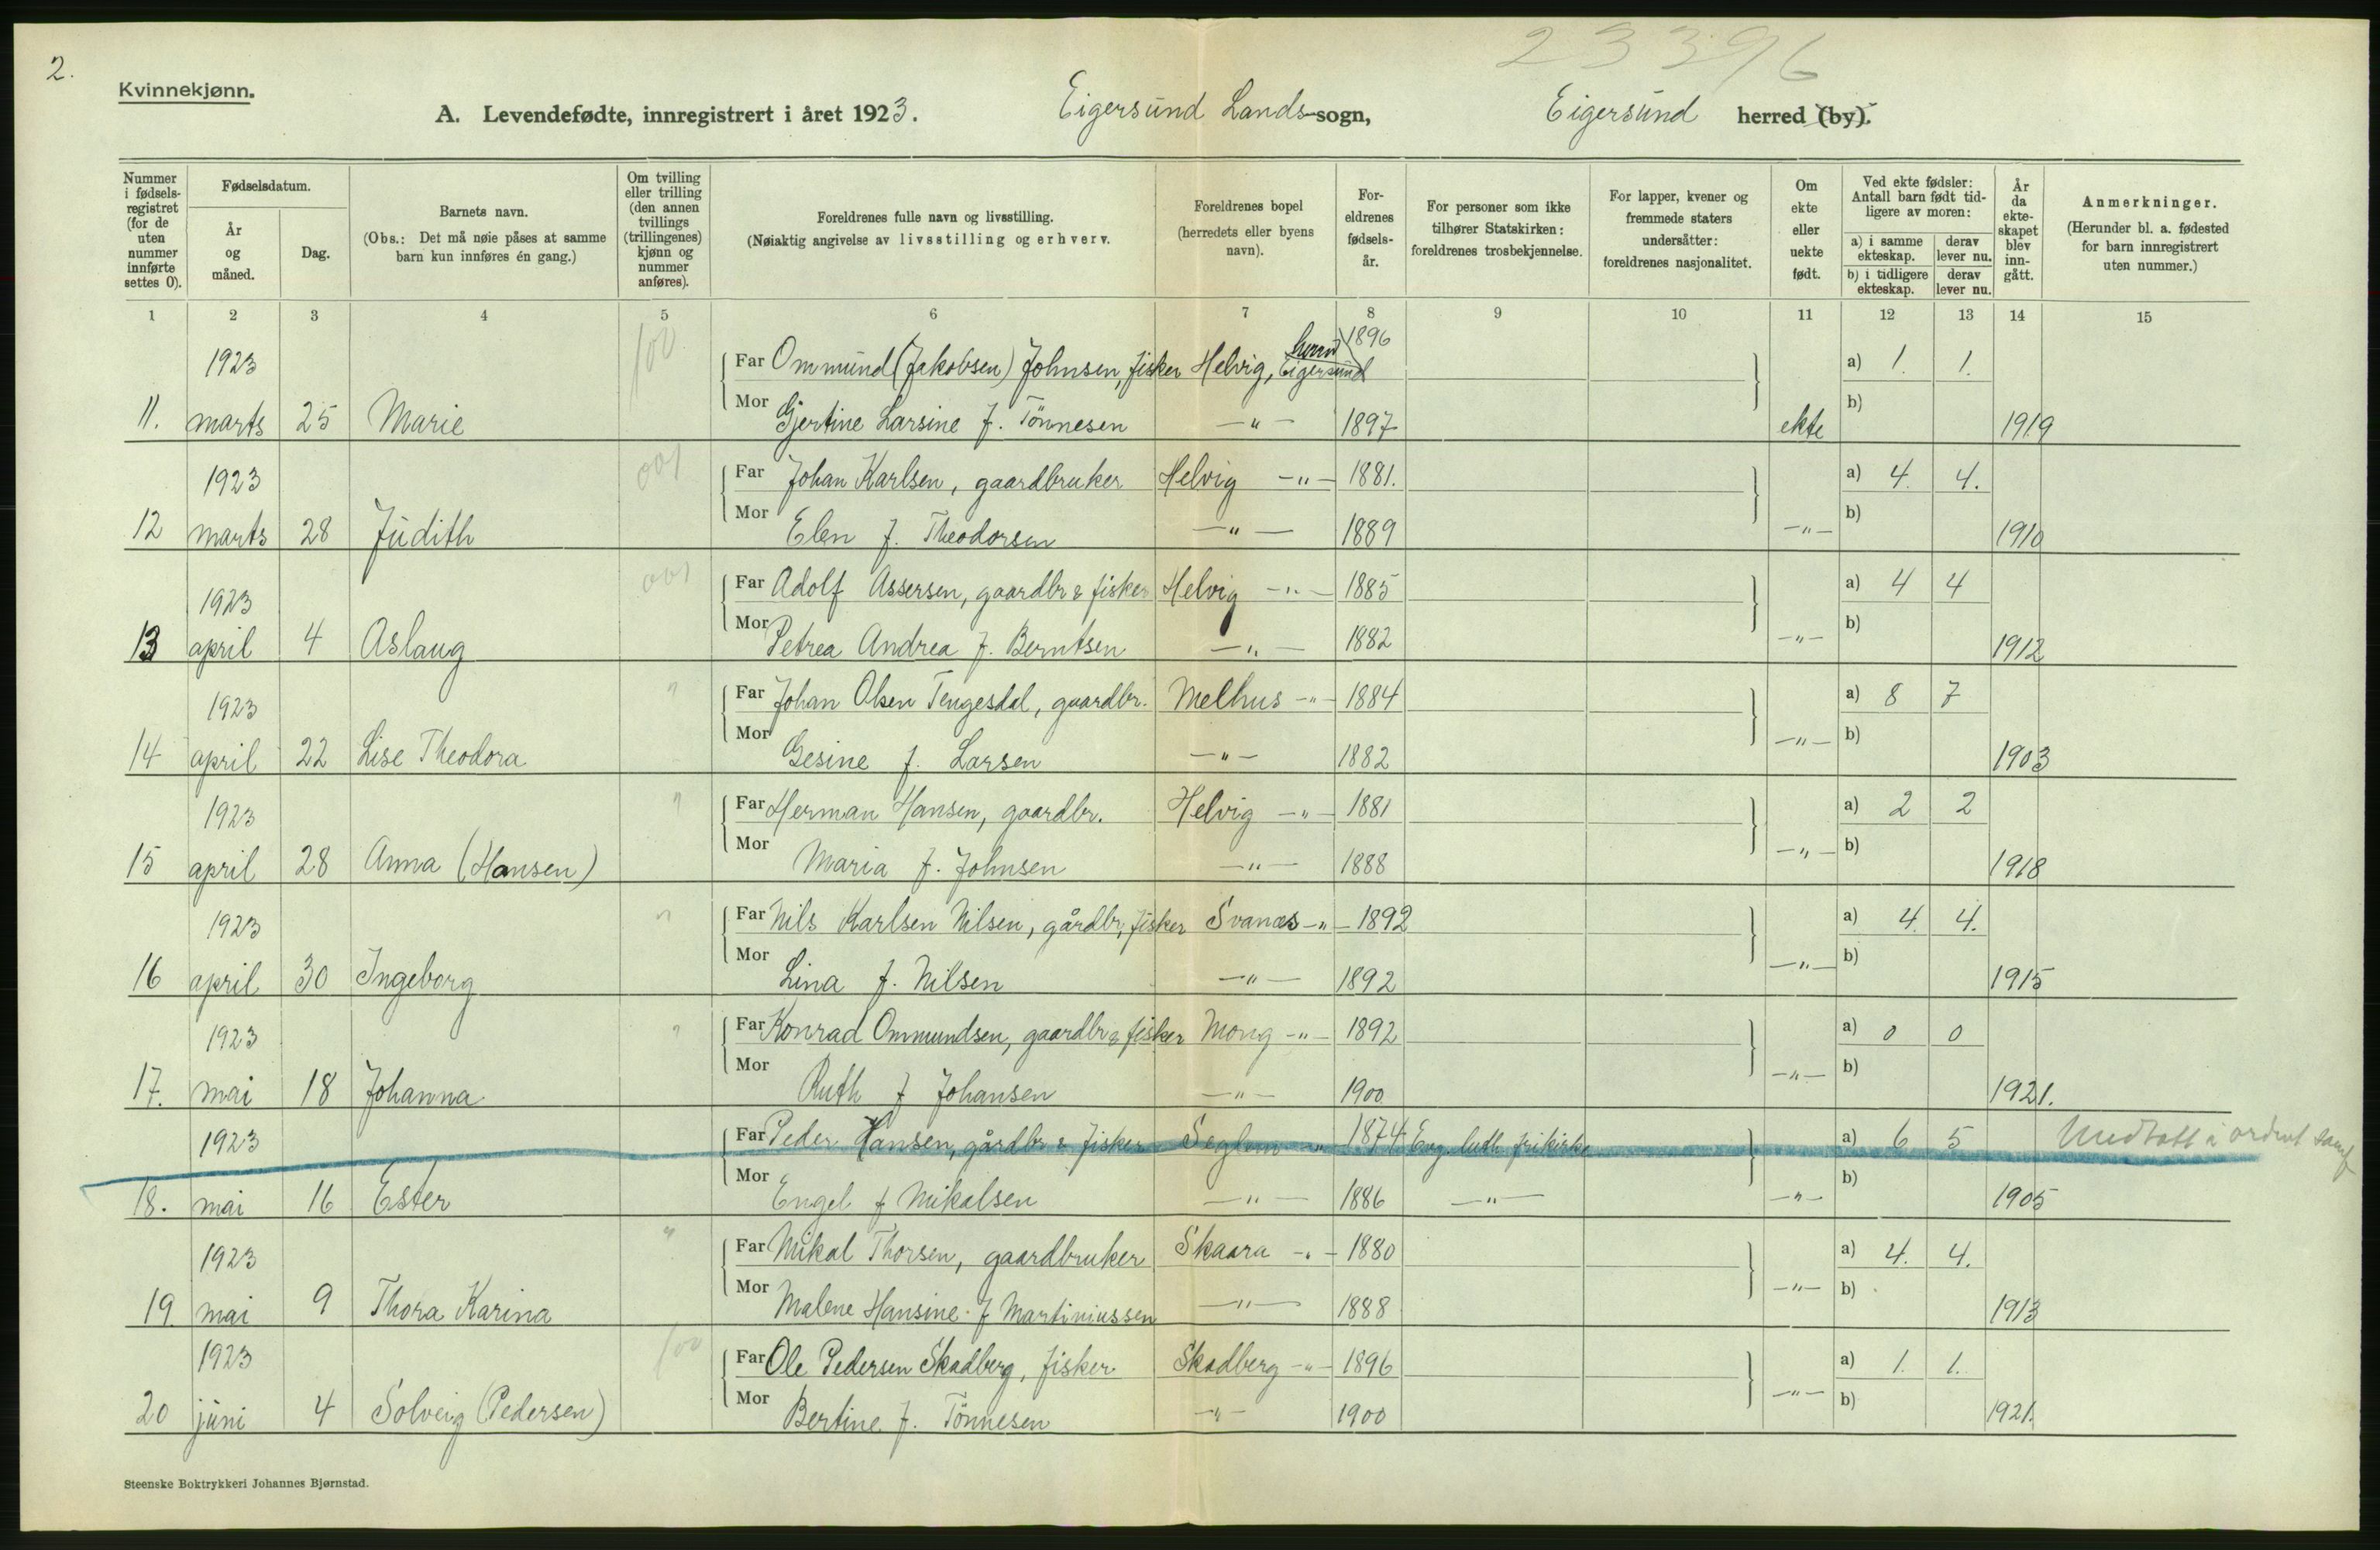 2.
23396
Kvinnekjønn.
A. Levendefødte, innregistrert i året 1923. Eigersund Lands-sogn, Eigersund herred (by).
Nummer i fødsels-registret (for de uten nummer innførte settes 0).
Fødselsdatum.
År og måned.
Dag.
Barnets navn.
(Obs.: Det må nøie påses at samme barn kun innføres én gang.)
Om tvilling eller trilling (den annen tvillings (trillingenes) kjønn og nummer anføres).
Foreldrenes fulle navn og livsstilling.
(Nøiaktig angivelse av livsstilling og erhverv.
Foreldrenes bopel (herredets eller byens navn).
For-eldrenes fødsels-år.
For personer som ikke tilhører Statskirken: foreldrenes trosbekjennelse.
For lapper, kvener og fremmede staters undersåtter: foreldrenes nasjonalitet.
Om ekte eller uekte født.
Ved ekte fødsler: Antall barn født tid-ligere av moren:
a) i samme ekteskap. derav lever nu.
b) i tidligere ekteskap. derav lever nu.
År da ekte-skapet blev inn-gått.
Anmerkninger.
(Herunder bl. a. fødested for barn innregistrert uten nummer.)
1 2 3 4 5 6 7 8 9 10 11 12 13 14 15
1923 100 Far Ommund (Jakobsen) Johnsen, fisker Helvig, Eigersund herred 1896 a) 1. 1.
11. marts 25 Marie Mor Gjertine Larsine f. Tönnesen —"— 1897 ekte b) 1919
1923 001 Far Johan Karlsen, gaardbruker Helvig —"— 1881. a) 4. 4.
12 marts 28 Judith Mor Elen f. Theodorsen —"— 1889 —"— b) 1910
1923 001 Far Adolf Assersen, gaardbr & fisker Helvig —"— 1885 a) 4 4
13 april 4 Aslaug Mor Petrea Andrea f. Berntsen —"— 1882 —"— b) 1912
1923 " Far Johan Olsen Tengesdal, gaardbr. Melhus —"— 1884 a) 8 7
14 april 22 Lise Theodora Mor Gesine f. Larsen —"— 1882 —"— b) 1903
1923 " Far Herman Hansen, gaardbr. Helvig —"— 1881 a) 2 2
15 april 28 Anna (Hansen) Mor Maria f. Johnsen —"— 1888 —"— b) 1918
1923 " Far Nils Karlsen Nilsen, gårdbr, fisker Svanæs —"— 1892 a) 4. 4.
16 april 30 Ingeborg Mor Lina f. Nilsen —"— 1892 —"— b) 1915
1923 " Far Konrad Ommundsen, gaardbr & fisker Mong —"— 1892 a) 0 0
17. mai 18 Johanna Mor Ruth f Johansen —"— 1900 —"— b) 1921.
1923 Far Peder Hansen, gårdbr & fisker Seglem —"— 1874 Evg. luth frikirke a) 6 5
18. mai 16 Ester Mor Engel f Mikalsen —"— 1886 —"— —"— b) 1905
1923 " Far Mikal Thorsen, gaardbruker Skaara —"— 1880 a) 4. 4.
19. mai 9 Thora Karina Mor Malene Hansine f Martiniussen —"— 1888 —"— b) 1913
1923 100 Far Ole Pedersen Skadberg, fisker. Skadberg —"— 1896 a) 1. 1.
20 juni 4 Solveig (Pedersen) Mor Bertine f. Tönnesen —"— 1900 —"— b) 1921.
Steenske Boktrykkeri Johannes Bjørnstad.